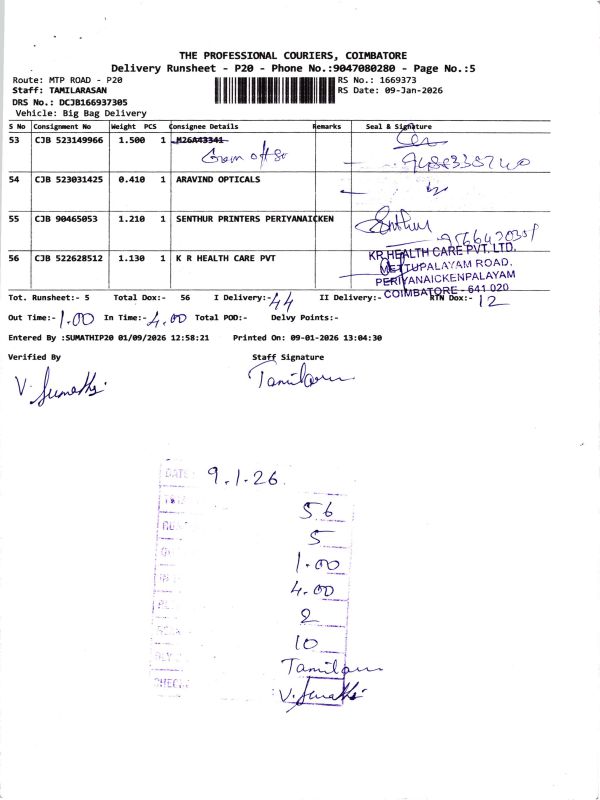 THE PROFESSIONAL COURIERS, COIMBATORE
Delivery Runsheet - P20 - Phone No.:9047080280 - Page No.:5
Route: MTP ROAD - P20
RS No.: 1669373
Staff: TAMILARASAN
RS Date: 09-Jan-2026
DRS No.: DCJB166937305
Vehicle: Big Bag Delivery
S No Consignment No Weight PCS Consignee Details Remarks Seal & Signature
53 CJB 523149966 1.500 1 M26A43341
54 CJB 523031425 0.410 1 ARAVIND OPTICALS
55 CJB 90465053 1.210 1 SENTHUR PRINTERS PERIYANAICKEN
Senthur
56 CJB 522628512 1.130 1 K R HEALTH CARE PVT
KR HEALTH CARE PVT. LTD.
METTUPALAYAM ROAD.
PERIYANAICKENPALAYAM
COIMBATORE - 641 020
Tot. Runsheet:- 5 Total Dox:- 56 I Delivery:- 44 II Delivery:- RTN Dox:- 12
Out Time:- 1.00 In Time:- 4.00 Total POD:- Delvy Points:-
Entered By :SUMATHIP20 01/09/2026 12:58:21 Printed On: 09-01-2026 13:04:30
Verified By Staff Signature
V. Sumathi Tamilarasan
DATE 9.1.26
56
5
1.00
4.00
2
10
Tamilarasan
CHECK V. Sumathi